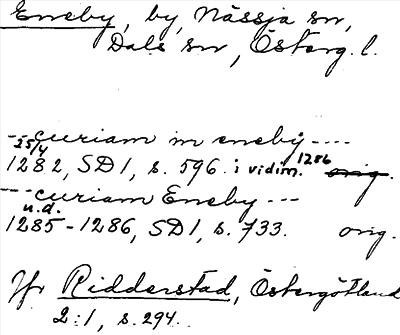 Eneby, by, Nässja sn,
Dals sn, Österg. l.
---curiam in eneby----
25/4
1282, SD1, s. 596. i vidim. 1286 orig.
---curiam Eneby---
u.d.
1285-1286, SD1, s. 733. orig.
Jfr Ridderstad, Östergötland
2:1, s. 294.